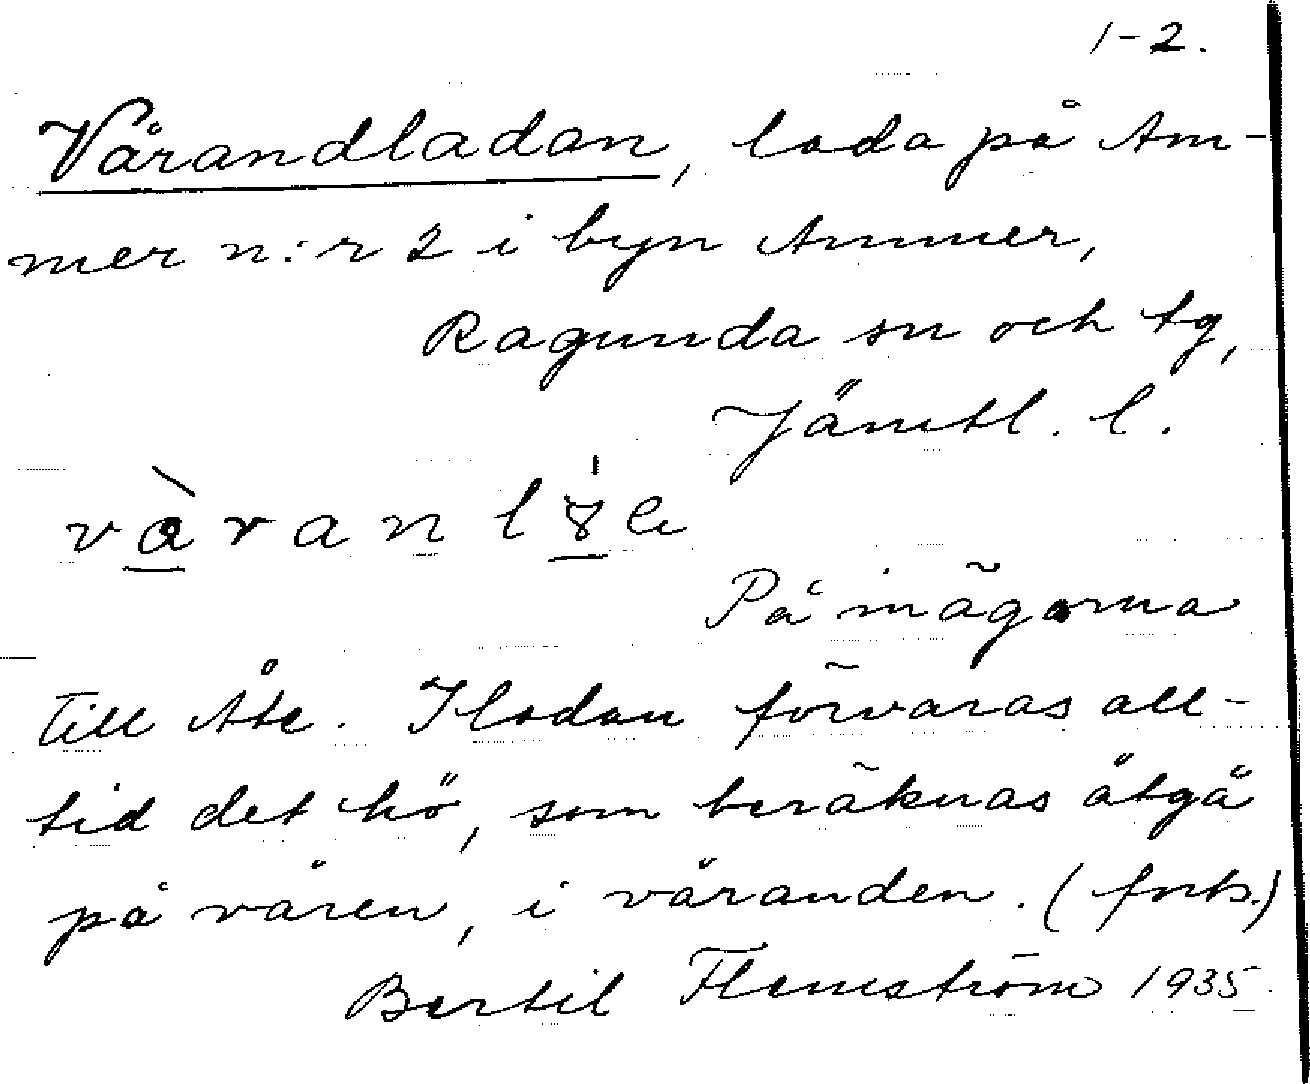 1-2.
Vårandladan, lada på Am-
mer n:r 2 i byn Ammer,
Ragunda sn och tg,
Jämtl. l.
På inägorna
till Åte. I ladan förvaras all-
tid det hö, som beräknas åtgå
på våren, i våranden. (forts.)
Bertil Flemström 1935.